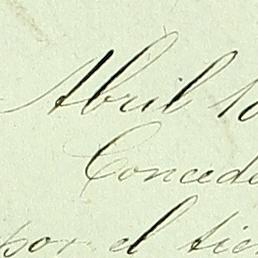 Abril 10
Concede
por el tie